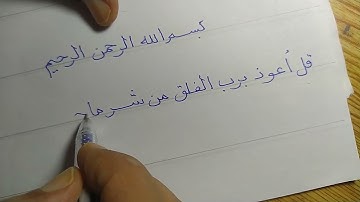 بسم الله الرحمن الرحيم
قل أعوذ برب الفلق من شر ما